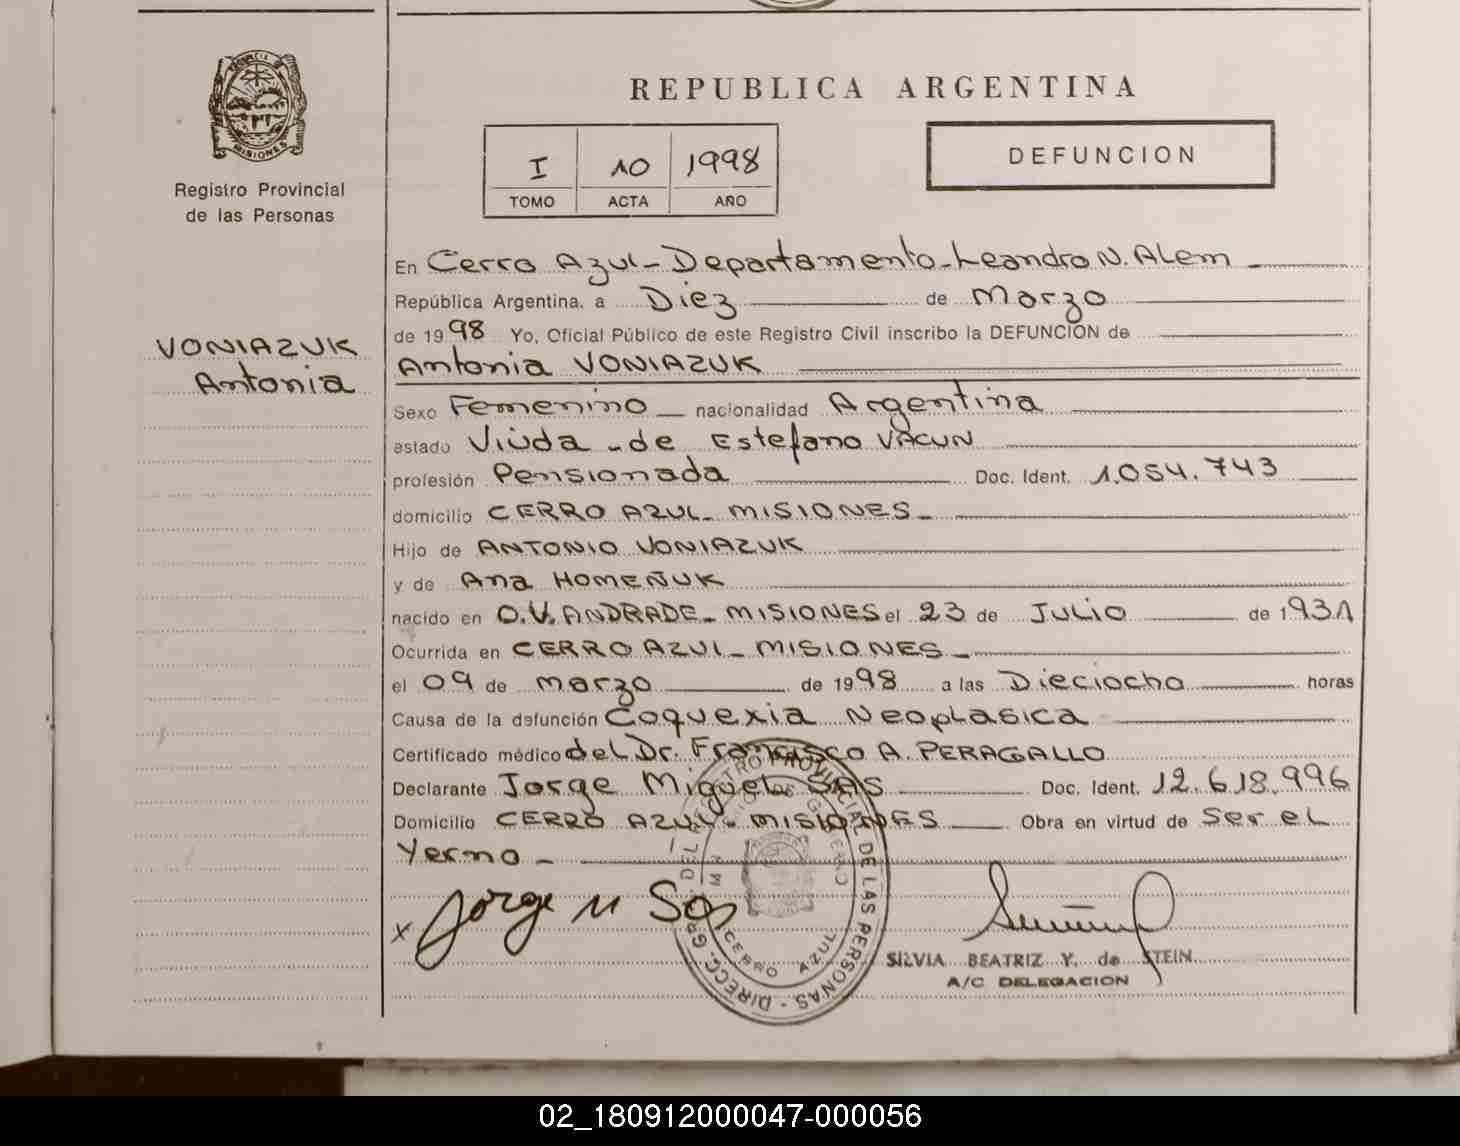 REPUBLICA ARGENTINA
PROVINCIA DE MISIONES
Registro Provincial
de las Personas
I 10 1998
TOMO ACTA AÑO
DEFUNCION
VONIAZUK
Antonia
En Cerro Azul - Departamento - Leandro N. ALem
República Argentina, a Diez de Marzo
de 1998 Yo, Oficial Público de este Registro Civil inscribo la DEFUNCION de
Antonia VONIAZUK
Sexo Femenino nacionalidad Argentina
estado Viuda - de Estefano VACUN
profesión Pensionada Doc. Ident. 1.054.743
domicilio CERRO AZUL - MISIONES -
Hijo de ANTONIO VONIAZUK
y de Ana HOMEÑUK
nacido en O.V. ANDRADE - MISIONES el 23 de JULIO de 1931
Ocurrida en CERRO AZUL - MISIONES -
el 09 de marzo de 1998 a las Dieciocho horas
Causa de la defunción Coquexia Neoplasica
Certificado médico deL Dr. Francisco A. PERAGALLO
Declarante Jorge Miguel SAS Doc. Ident. 12.618.996
Domicilio CERRO AZUL - MISIONES Obra en virtud de Ser eL
Yerno -
x Jorge M Sas
DIRECC. GRAL. DEL REGISTRO PROVINCIAL DE LAS PERSONAS
CERRO AZUL
SILVIA BEATRIZ Y. de STEIN
A/C DELEGACION
02_180912000047-000056